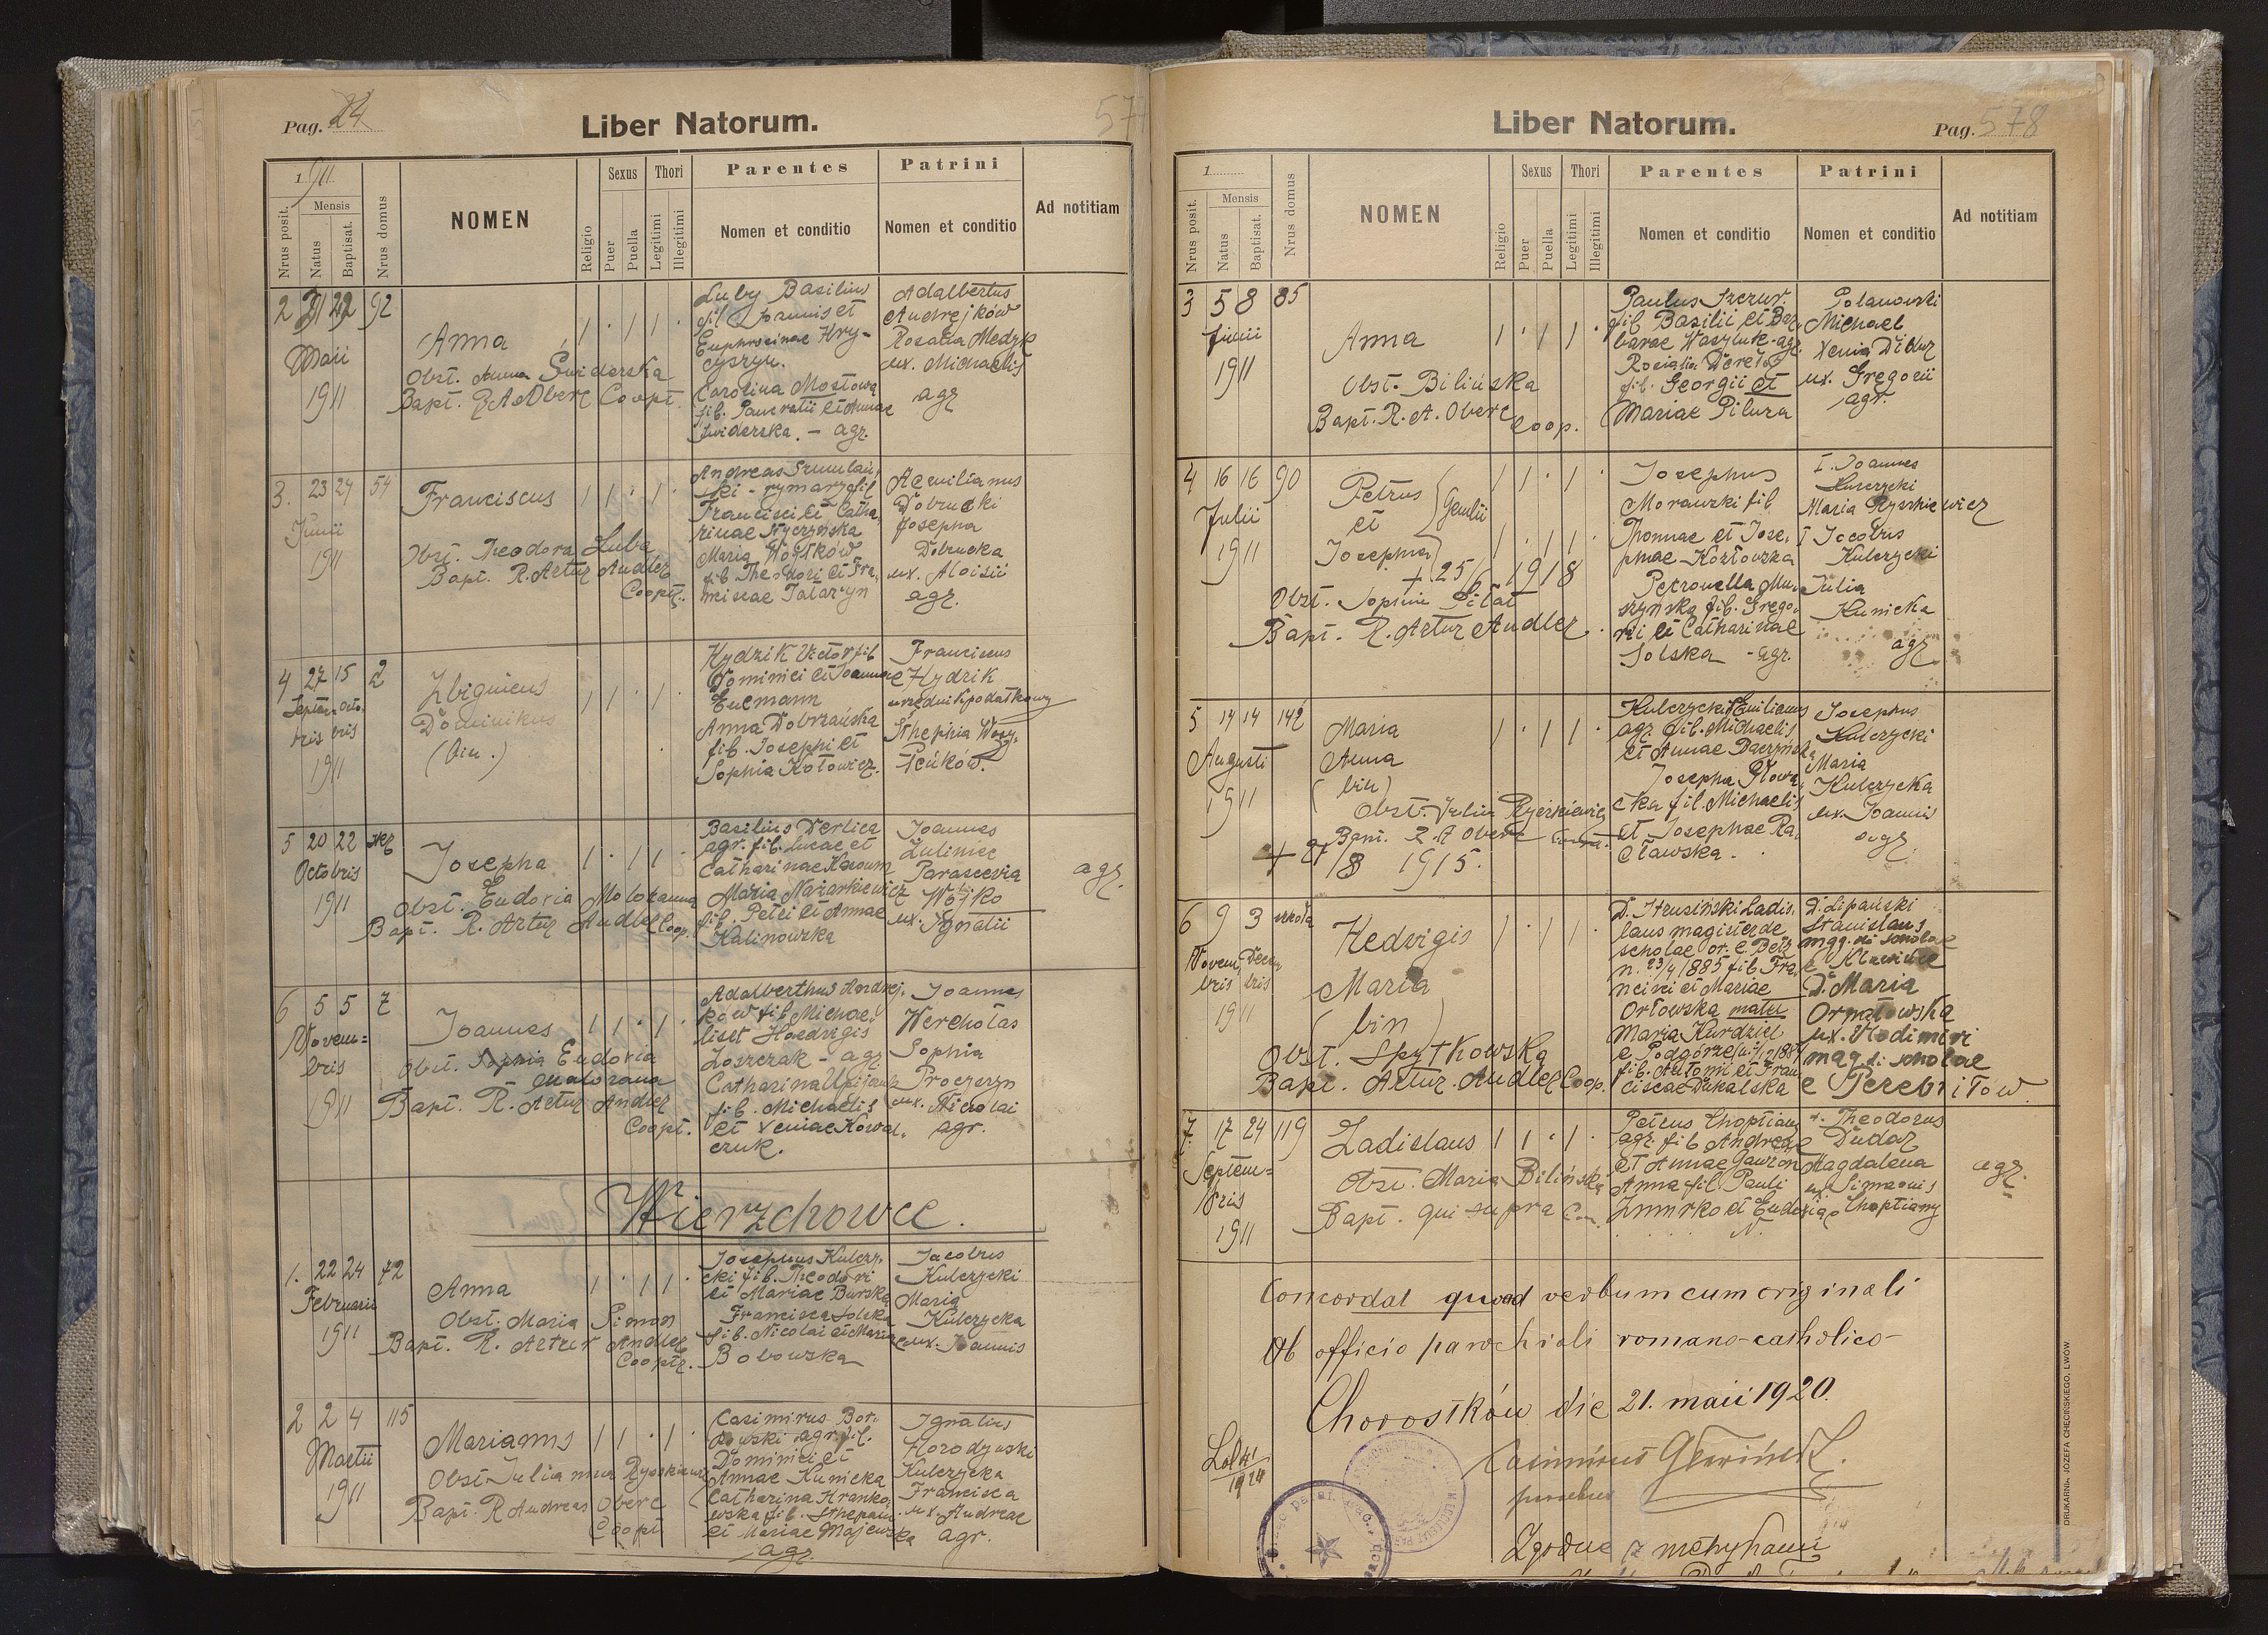 Pag. 24
Liber Natorum.
57
1911
Nrus posit.
Mensis
Natus
Baptisat.
Nrus domus
NOMEN
Religio
Sexus
Puer
Puella
Thori
Legitimi
Illegitimi
Parentes
Nomen et conditio
Patrini
Nomen et conditio
Ad notitiam
2 92
Maii
1911
Anna
Obst. Anna Świderska
Bapt. R A Oberc Coopt.
Luby Basilius
fil Joannis et
Euphrosinae Hry-
cyszyn.
Carolina Mostowa
fil. Pancratii et Annae
Świderska. - agr.
Adalbertus
Andrejków
Rosalia Medyk
ux. Michaelis
agr
3. 23 24 54
Junii
1911
Franciscus
Obst. Theodora Luba
Bapt. R. Artur Andler
Coopt.
Andreas Szmulań
ski - rymarz fil
Francisci et Catha
rinae Kyczyńska
Maria Wojtków
fil. Theodori et Fra
nciscae Tataryn
Aemilianus
Dobrucki
Josepha
Dobrucka
ux. Aloisii
agr.
4 27 15 2
Septem Octo.
bris bris
1911
Zbignieus
Dominikus
(bin.)
Hydzik Victor fil
Dominici et Joannae
Eucmann
Anna Dobrzańska
fil. Josephi et
Sophia Kotowicz.
Franciscus
Hydzik
urzednik podatkowy
Sthephia Wasy.
Peńków.
5 20 22
Octobris
1911
Josepha
Obst. Eudoxia Molozanna
Bapt. R. Artur Andler Coop.
Basilius Derlica
agr. fil. Lucae et
Catharinae Karoum
Maria Nazarkiewicz
fil. Petri et Annae
Kalinowska
Joannes
Zuliniec
Parascevia
Wojko
ux. Ignatii
agr.
6 5 5 7
Novem=
bris
1911
Joannes
Obst. Sophia Eudoxia
Malozana
Bapt. R. Artur Andler
Coopt.
Adalberthus Andrej.
ków fil Michae.
lis et Hedvigis
Loszczak - agr
Catharina
fil. Michaelis
et Xeniae Kowal.
czuk.
Joannes
Wercholas
Sophia
Proczeryn
ux. Nicolai
agr.
Wierzchowce.
1. 22 24 72
Februarii
1911
Anna
Obst. Maria Simon
Bapt. R. Artur Andler
Cooptr.
Josephus Kulczy-
cki fil. Theodori
et Mariae Burska
Francisca Solska
fil. Nicolai et Mariae
Bobowska
Jacobus
Kulczycki
Maria
Kulczycka
ux. Joannis
2 2 4 115
Martii
1911
Marianus
Obst Juliana Ryszkiewicz
Bapt. R Andreas Oberc
Coopt
Casimirus Bor.
kowski agr. fil.
Dominici et
Annae Kunicka
Catharina Kranko.
wska fil. Sthepani
et Mariae Majewska
agr.
Ignatius
Horodyuski
Kulczycka
Francisca
ux. Andreae
agr.
Liber Natorum.
Pag. 578
1
Nrus posit.
Mensis
Natus
Baptisat.
Nrus domus
NOMEN
Religio
Sexus
Puer
Puella
Thori
Legitimi
Illegitimi
Parentes
Nomen et conditio
Patrini
Nomen et conditio
Ad notitiam
3 5 8 85
Junii
1911
Anna
Obst. Bilińska
Bapt. R. A. Oberc
Coop.
Paulus Szczur.
fil Basilii et Bar.
barae Wasyluk - agr.
Rosalia Dereto
fil. Georgii et
Mariae Pilura
Polanowski
Michael
Xenia Didur
ux. Gregorii
agr.
4 16 16 90
Julii
1911
Petrus
et
Josephia
Gemelli
+ 25/6 1918
Obst. Sophie Pilat
Bapt. R. Artur Andler.
Josephus
Morawski fil
Thomae et Jose.
phae Kozłowska
Petronella Mu-
szyńska fil. Grego.
rii et Catharinae
Solska - agr.
I. Joannes
Kulczycki
Maria Ryszkiewicz
I Jacobus
Kulczycki
Julia
Kunicka
agr.
5 14 14 142
Augusti
1911
Maria
Anna
(bin)
Obst. Julia Ryszkiewicz
Bapt. R. A Oberc
+ 27/8 1915.
Kulczycki Emilianus
agr. fil. Michaelis
et Annae Daczyńska
Josepha Głowa
cka fil. Michaelis
et Josephae Ra.
cławska.
Josephus
Kulczycki
Maria
Kulczycka
ux. Joannis
agr
6 9 3 szkoła
Novem Decem
bris bris
1911
Hedvigis
Maria
(bin)
Obst. Spytkowska
Bapt. Artur Andler Coop.
D. Strusiński Ladis.
laus magister de
scholae or. e Bełz
n. 23/4 1885 fil Fra
ncisci et Mariae
Orłowska mater
Maria Kurdziel
e Podgórze
fil. Antonii et Fran
ciscae Dukalska
D. Lipański
Stanislaus
mgg. di scholae
D. Maria
Ornatowska
ux. Wlodimiri
mag. di scholae
e Perebritow.
7. 17 24 119
Septem=
bris
1911
Ladislaus
Obst. Maria Bilińska
Bapt. qui supra
Petrus Choptiany
agr. fil Andreae
et Annae Gawron
Anna fil. Pauli
Zmurko et Eudoxiae
Theodorus
Dudar
Magdalena
ux Simeonis
Choptiany
agr.
Concordat quoad verbum cum originali
Ab officio parochiali romano-catholico-
Chorostków die 21. maii 1920.
DRUKARNIA JÓZEFA CHĘCIŃSKIEGO, LWÓW